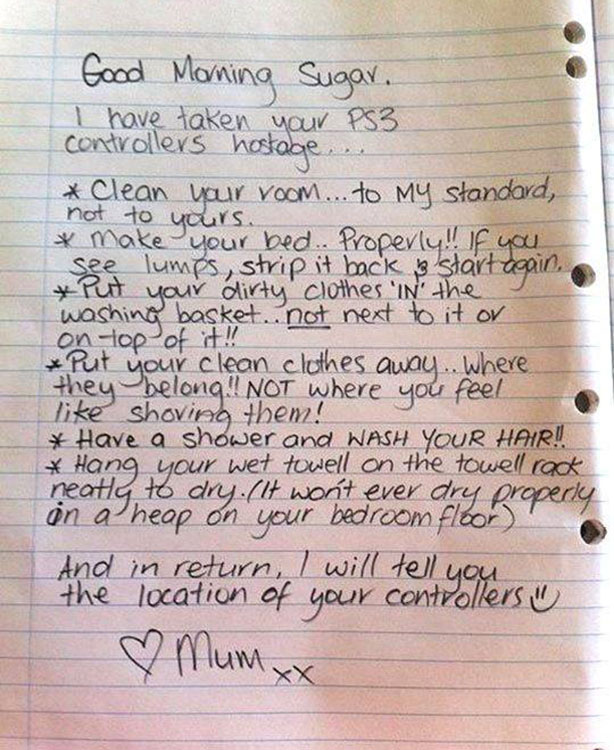 Good Morning Sugar.
I have taken your PS3
controllers hostage...
* Clean your room... to MY standard,
not to yours.
* Make your bed.. Properly!! If you
see lumps, strip it back & start again.
* Put your dirty clothes 'IN' the
washing basket.. not next to it or
on-top of it!!
* Put your clean clothes away.. where
they belong!! NOT where you feel
like shoving them!
* Have a shower and WASH YOUR HAIR!!
* Hang your wet towell on the towell rack
neatly to dry. (It won't ever dry properly
in a heap on your bedroom floor)
And in return, I will tell you
the location of your controllers
♡ Mum xx